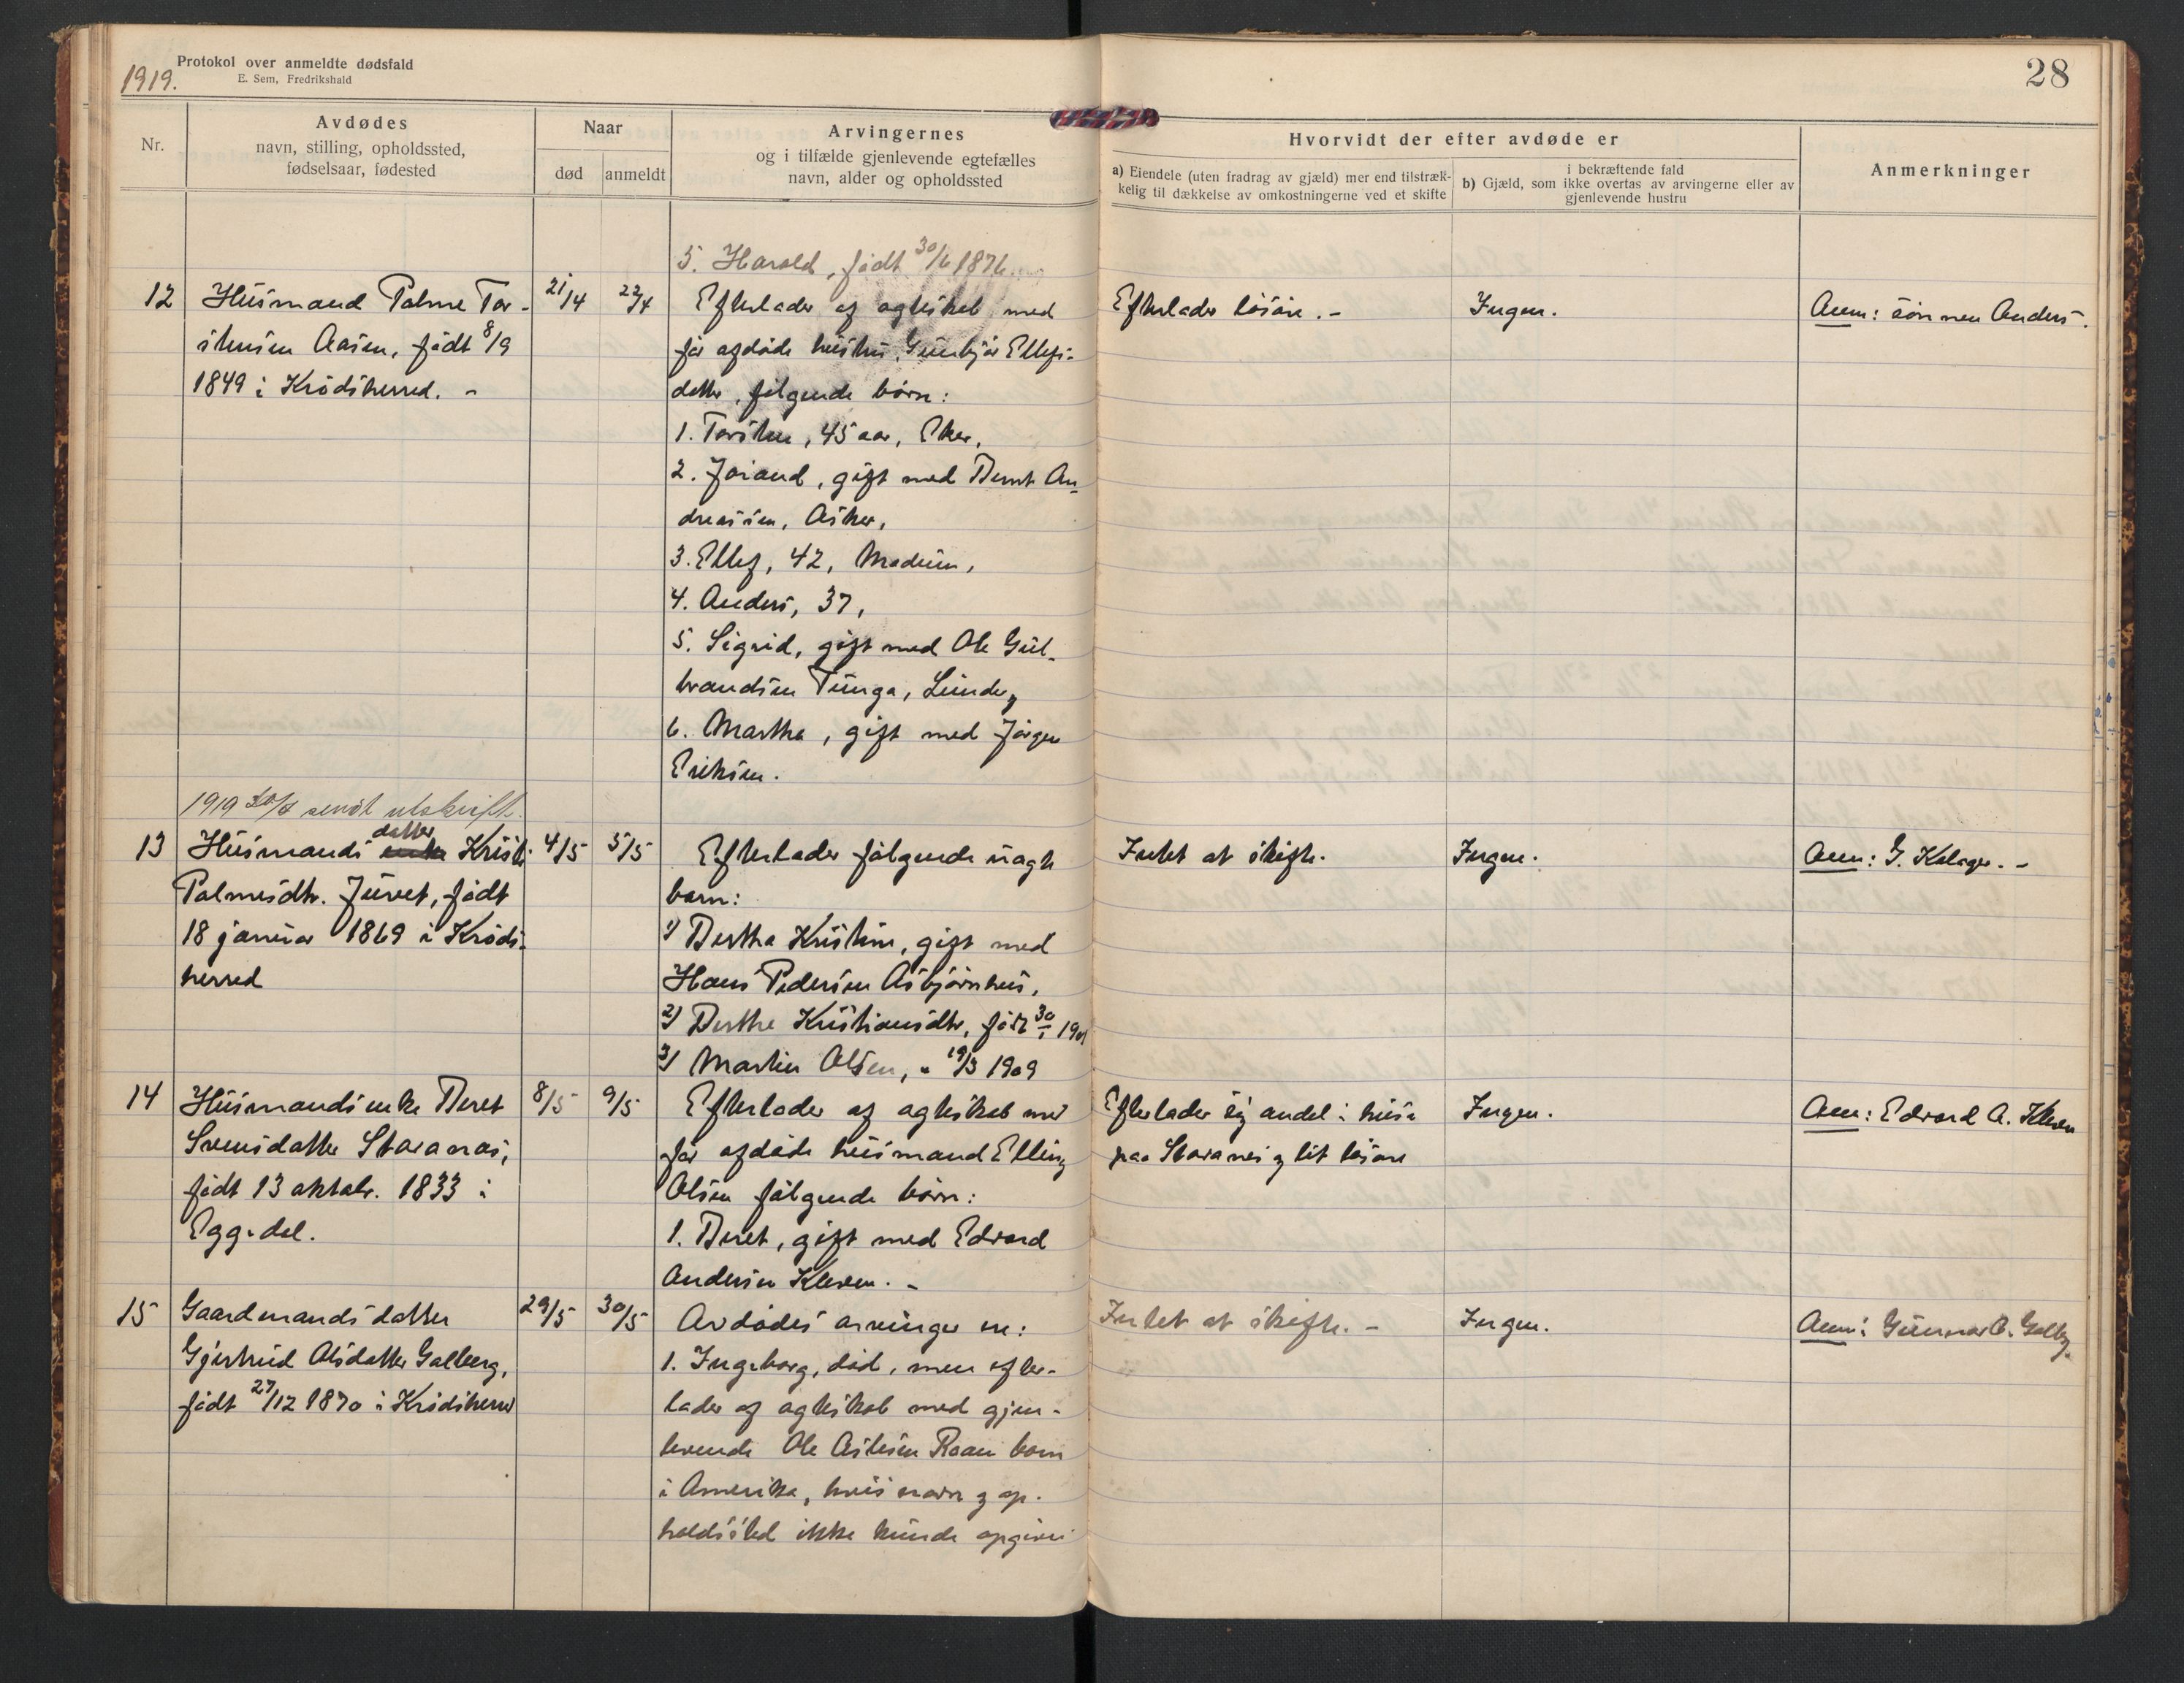 1919.
Protokol over anmeldte dødsfald
E. Sem, Fredrikshald
28
Nr.
Avdødes
navn, stilling, opholdssted,
fødselsaar, fødested
Naar
død
anmeldt
Arvingernes
og i tilfælde gjenlevende egtefælles
navn, alder og opholdssted
Hvorvidt der efter avdøde er
a) Eiendele (uten fradrag av gjæld) mer end tilstræk-
kelig til dækkelse av omkostningerne ved et skifte
i bekræftende fald
b) Gjæld, som ikke overtas av arvingerne eller av
gjenlevende hustru
Anmerkninger
5. Harald, født 30/6 1876
12
Husmand Palme Tor-
stensen Aasen, født 8/9
1849 i Krødsherred. -
21/4
22/4
Efterlader af ægteskab med
før afdøde hustru, Gunbjør Ellefs-
datter, følgende børn:
1. Torsten, 45 aar, Eker,
2. Jøraand, gift med Bernt An-
dreassen, Asker,
3. Ellef, 42, Modum,
4. Anders, 37,
5. Sigrid, gift med Ole Gul-
brandsen Tunga, Lunder,
6. Martha, gift med Jørgen
Eriksen.
Efterlader løsøre. -
Ingen.
Anm: sønnen Anders.
1919 20/8 sendt utskrift.
13
Husmands datter Kristi
Palmesdtr. Juvet, født
18 januar 1869 i Krøds-
herred
4/5
5/5
Efterlader følgende uægte
barn:
1) Berthe Kristine, gift med
Hans Pedersen Asbjørnhus,
2) Berthe Kristiansdtr, født 30/1 1901
3) Martin Olsen, " 19/3 1909
Intet at skifte.
Ingen.
Anm: G. Kolager. -
14
Husmandsenke Beret
Svensdatter Storanæs,
født 13 oktobr. 1833 i
Eggedal.
8/5
9/5
Efterlader af ægteskab med
før afdøde husmand Elling
Olsen følgende børn:
1. Beret, gift med Edvard
Andersen Kleven. -
Efterlader sig andel i huse
paa Storanes og lit løsøre
Ingen.
Anm: Edvard A. Kleven
15
Gaardmandsdatter
Gjertrud Olsdatter Golberg,
født 27/12 1870 i Krødsherred
29/5
30/5
Avdødes arvinger er:
1. Ingeborg, død, men efter-
lader af ægteskab med gjen-
levende Ole Astesen Raaen barn
i Amerika, hvis navn og op-
holdssted ikke kunde opgives
Intet at skifte. -
Ingen.
Anm: Gunnar O. Golbg.